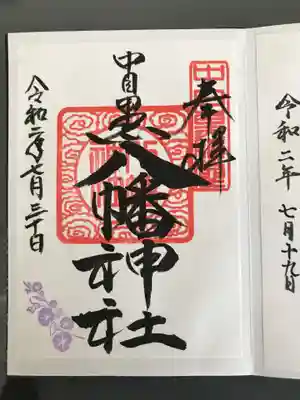 奉拝
中目黒八幡神社
令和二年七月三十日
令和二年 七月十九日